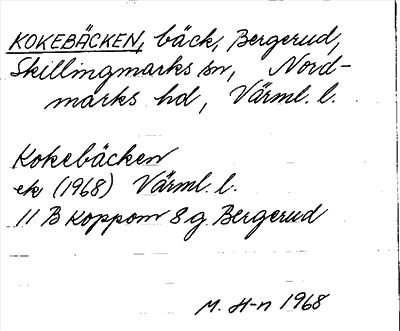 KOKEBÄCKEN, bäck, Bergerud,
Skillingmarks sn, Nord-
marks hd, Värml. l.
Kokebäcken
ek (1968) Värml. l.
11 B Koppom 8 g Bergerud
M. H-n 1968